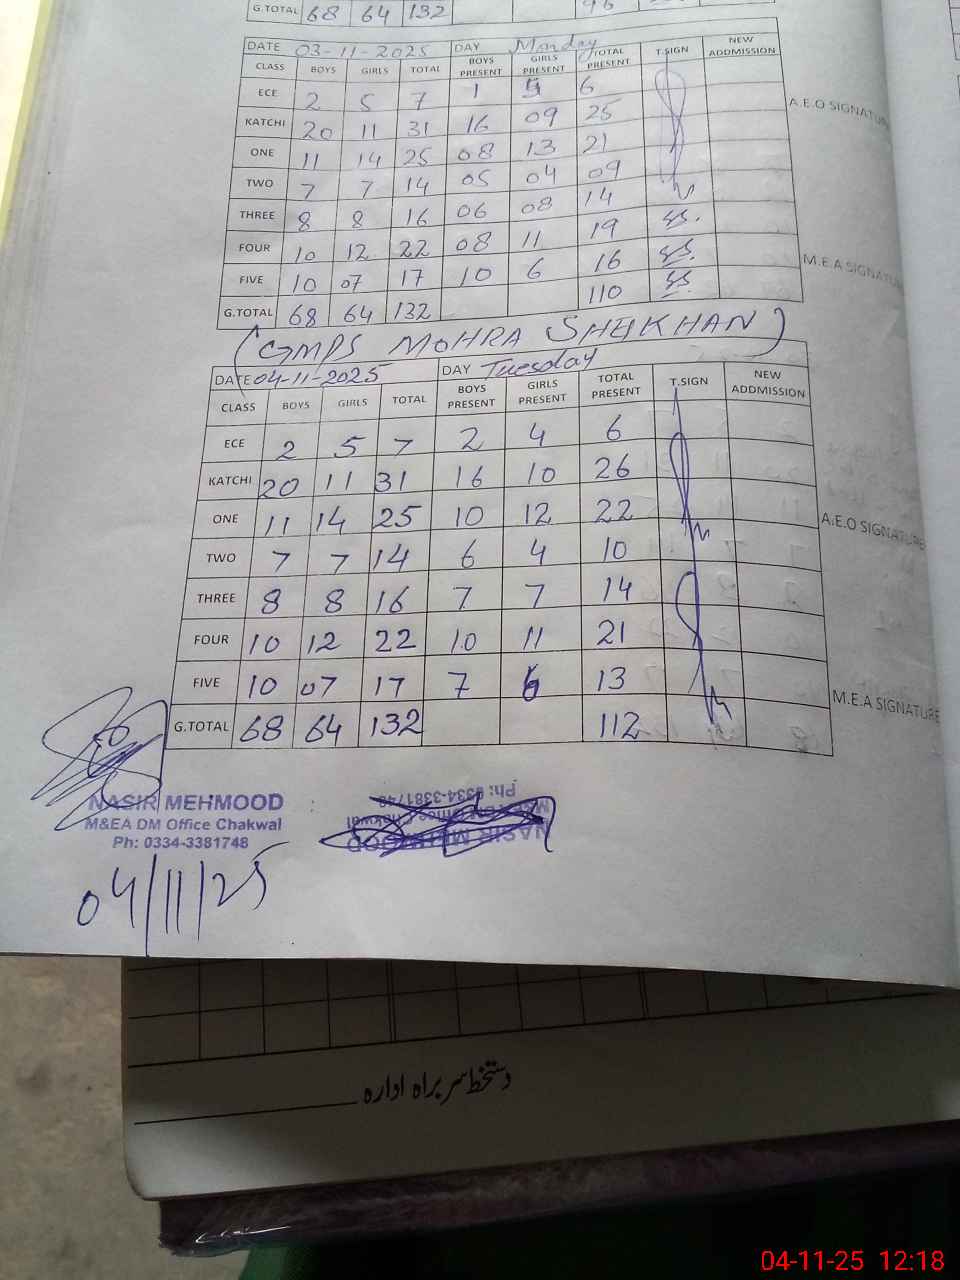 G.TOTAL 68 64 132 96
DATE 03-11-2025 DAY Monday
CLASS BOYS GIRLS TOTAL BOYS PRESENT GIRLS PRESENT TOTAL PRESENT T.SIGN NEW ADDMISSION
ECE 2 5 7 1 5 6
KATCHI 20 11 31 16 09 25
ONE 11 14 25 08 13 21
TWO 7 7 14 05 04 09
THREE 8 8 16 06 08 14
FOUR 10 12 22 08 11 19
FIVE 10 07 17 10 6 16
G.TOTAL 68 64 132 110
A.E.O SIGNATURE
M.E.A SIGNATURE
(GMPS MOHRA SHEIKHAN)
DATE 04-11-2025 DAY Tuesday
CLASS BOYS GIRLS TOTAL BOYS PRESENT GIRLS PRESENT TOTAL PRESENT T.SIGN NEW ADDMISSION
ECE 2 5 7 2 4 6
KATCHI 20 11 31 16 10 26
ONE 11 14 25 10 12 22
TWO 7 7 14 6 4 10
THREE 8 8 16 7 7 14
FOUR 10 12 22 10 11 21
FIVE 10 07 17 7 6 13
G.TOTAL 68 64 132 112
A.E.O SIGNATURE
M.E.A SIGNATURE
NASIR MEHMOOD
M&EA DM Office Chakwal
Ph: 0334-3381748
NASIR MEHMOOD
M&EA DM Office Chakwal
Ph: 0334-3381748
04/11/25
دستخط سربراہ ادارہ
04-11-25 12:18